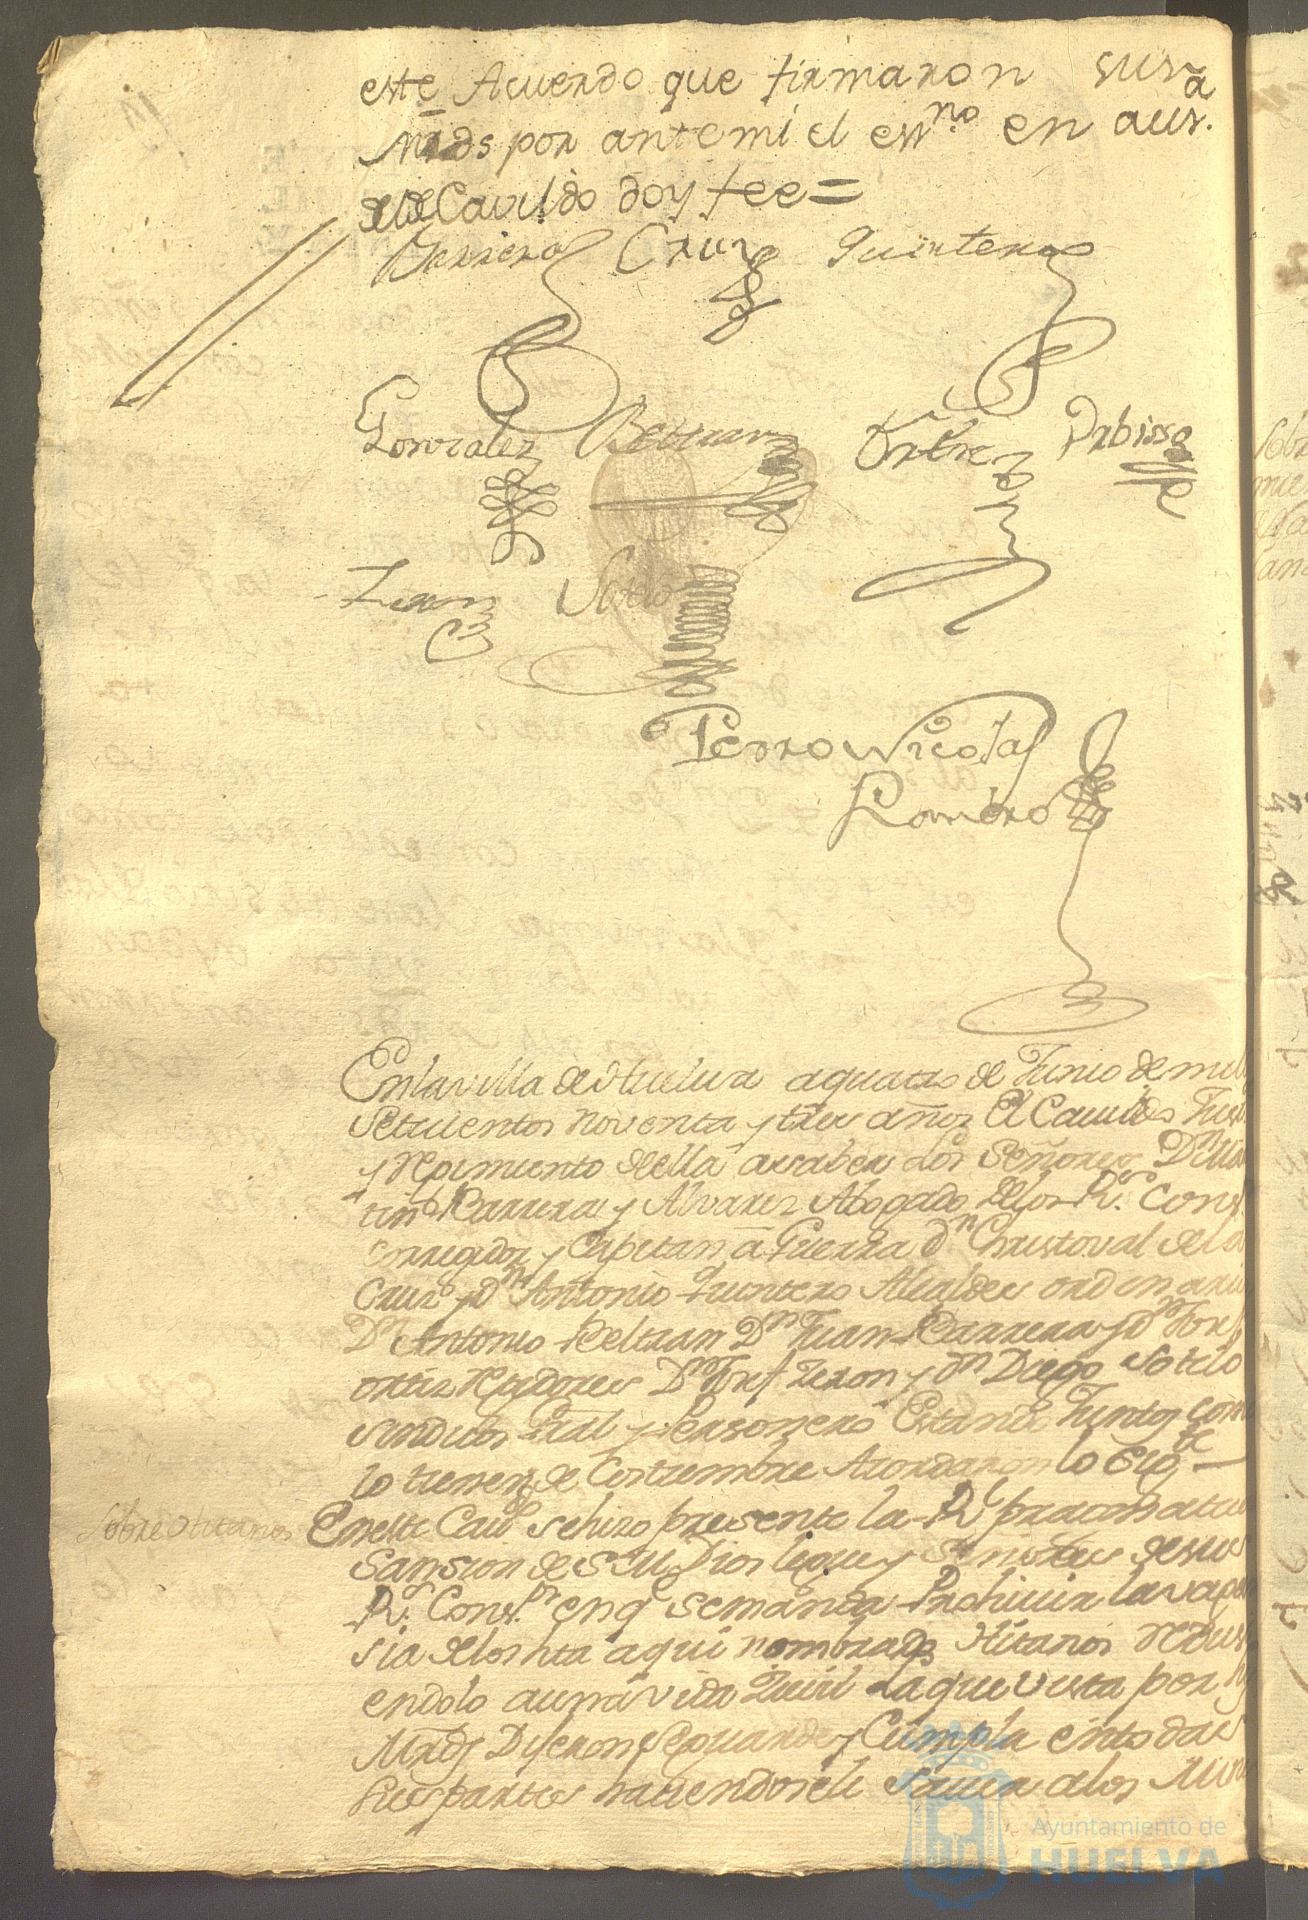 este Acuerdo que firmaron sus
Mrds por antemi el essno en aus.a
del de Cavildo doy fee =
Barrera Cruz Quintero
Gonzalez Beltran Ortiz
Zeron Sotelo
Pedro Nicolas
Romero
En la villa de Huelva a quatro de Junio de mill
Setecientos noventa y tres años El Cavildo Just
y Regimiento della a saver Los Señores Dn
Barrera y Alvarez Abogado de los Rs. Cons.
corregidor y Capitan a Guerra dn Christoval de la
Cruz y dn Antonio Quintero Alcaldes ordinario
Dn Antonio Beltran Dn Juan Barrera y dn Josef
ortiz Regidores Dn Josef Zeron y dn Diego Sotelo
sindicos Gral y Personero Estando Juntos como
lo tienen de Costumbre Acordaron lo Sigte
Sobre Hitanos
En este Cavdo se hizo presente la Rl pracmatica
Sansion de S. M. Dios le gue y Señores de su
Rl. Consl. en q se manda Prohivir la
de los hta aqui nombrados Hitanos
endolo a una vida Zivil La que vista por
Mrds Dijeron se guarde y Cumpla en todas
sus partes haciendosele saver a los
Ayuntamiento de
HUELVA